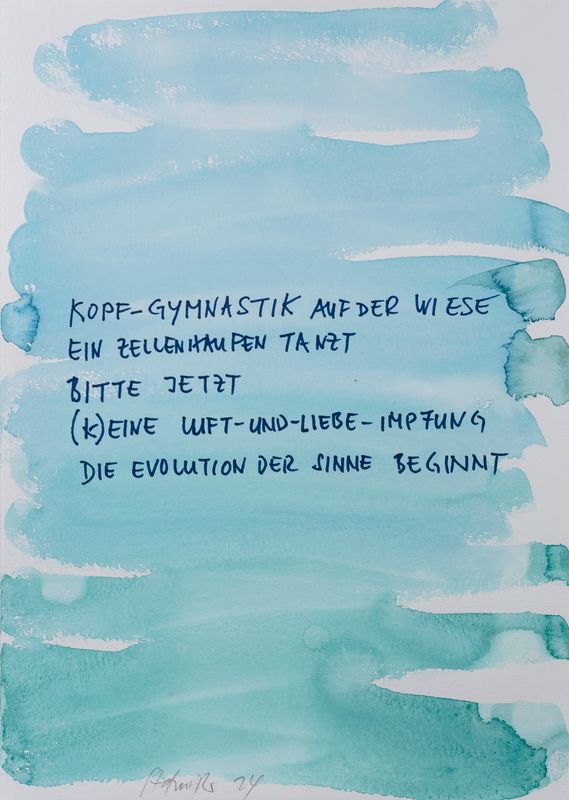 KOPF-GYMNASTIK AUF DER WIESE
EIN ZELLENHAUFEN TANZT
BITTE JETZT
(K)EINE LUFT-UND-LIEBE-IMPFUNG
DIE EVOLUTION DER SINNE BEGINNT
24